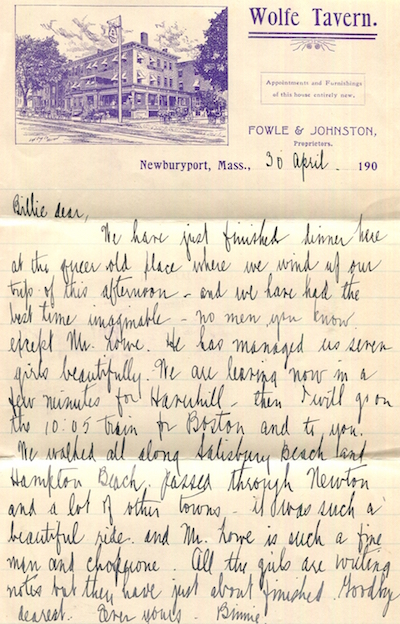 Wolfe Tavern.
Appointments and Furnishings
of this house entirely new.
FOWLE & JOHNSTON,
Proprietors.
Newburyport, Mass., 30 April. 190
Billie dear,
We have just finished dinner here
at the queer old place where we wind up our
trip of this afternoon - and we have had the
best time imaginable - no men you know
except Mr. Lowe. He has managed us seven
girls beautifully. We are leaving now in a
few minutes for Haverhill - then I will go on
the 10:05 train for Boston and to you.
We walked all along Salisbury Beach and
Hampton Beach. Passed through Newton
and a lot of other towns - it was such a
beautiful ride. and Mr. Lowe is such a fine
man and chaperone. All the girls are writing
notes but they have just about finished. Goodby
dearest. Ever yours - Binnie.